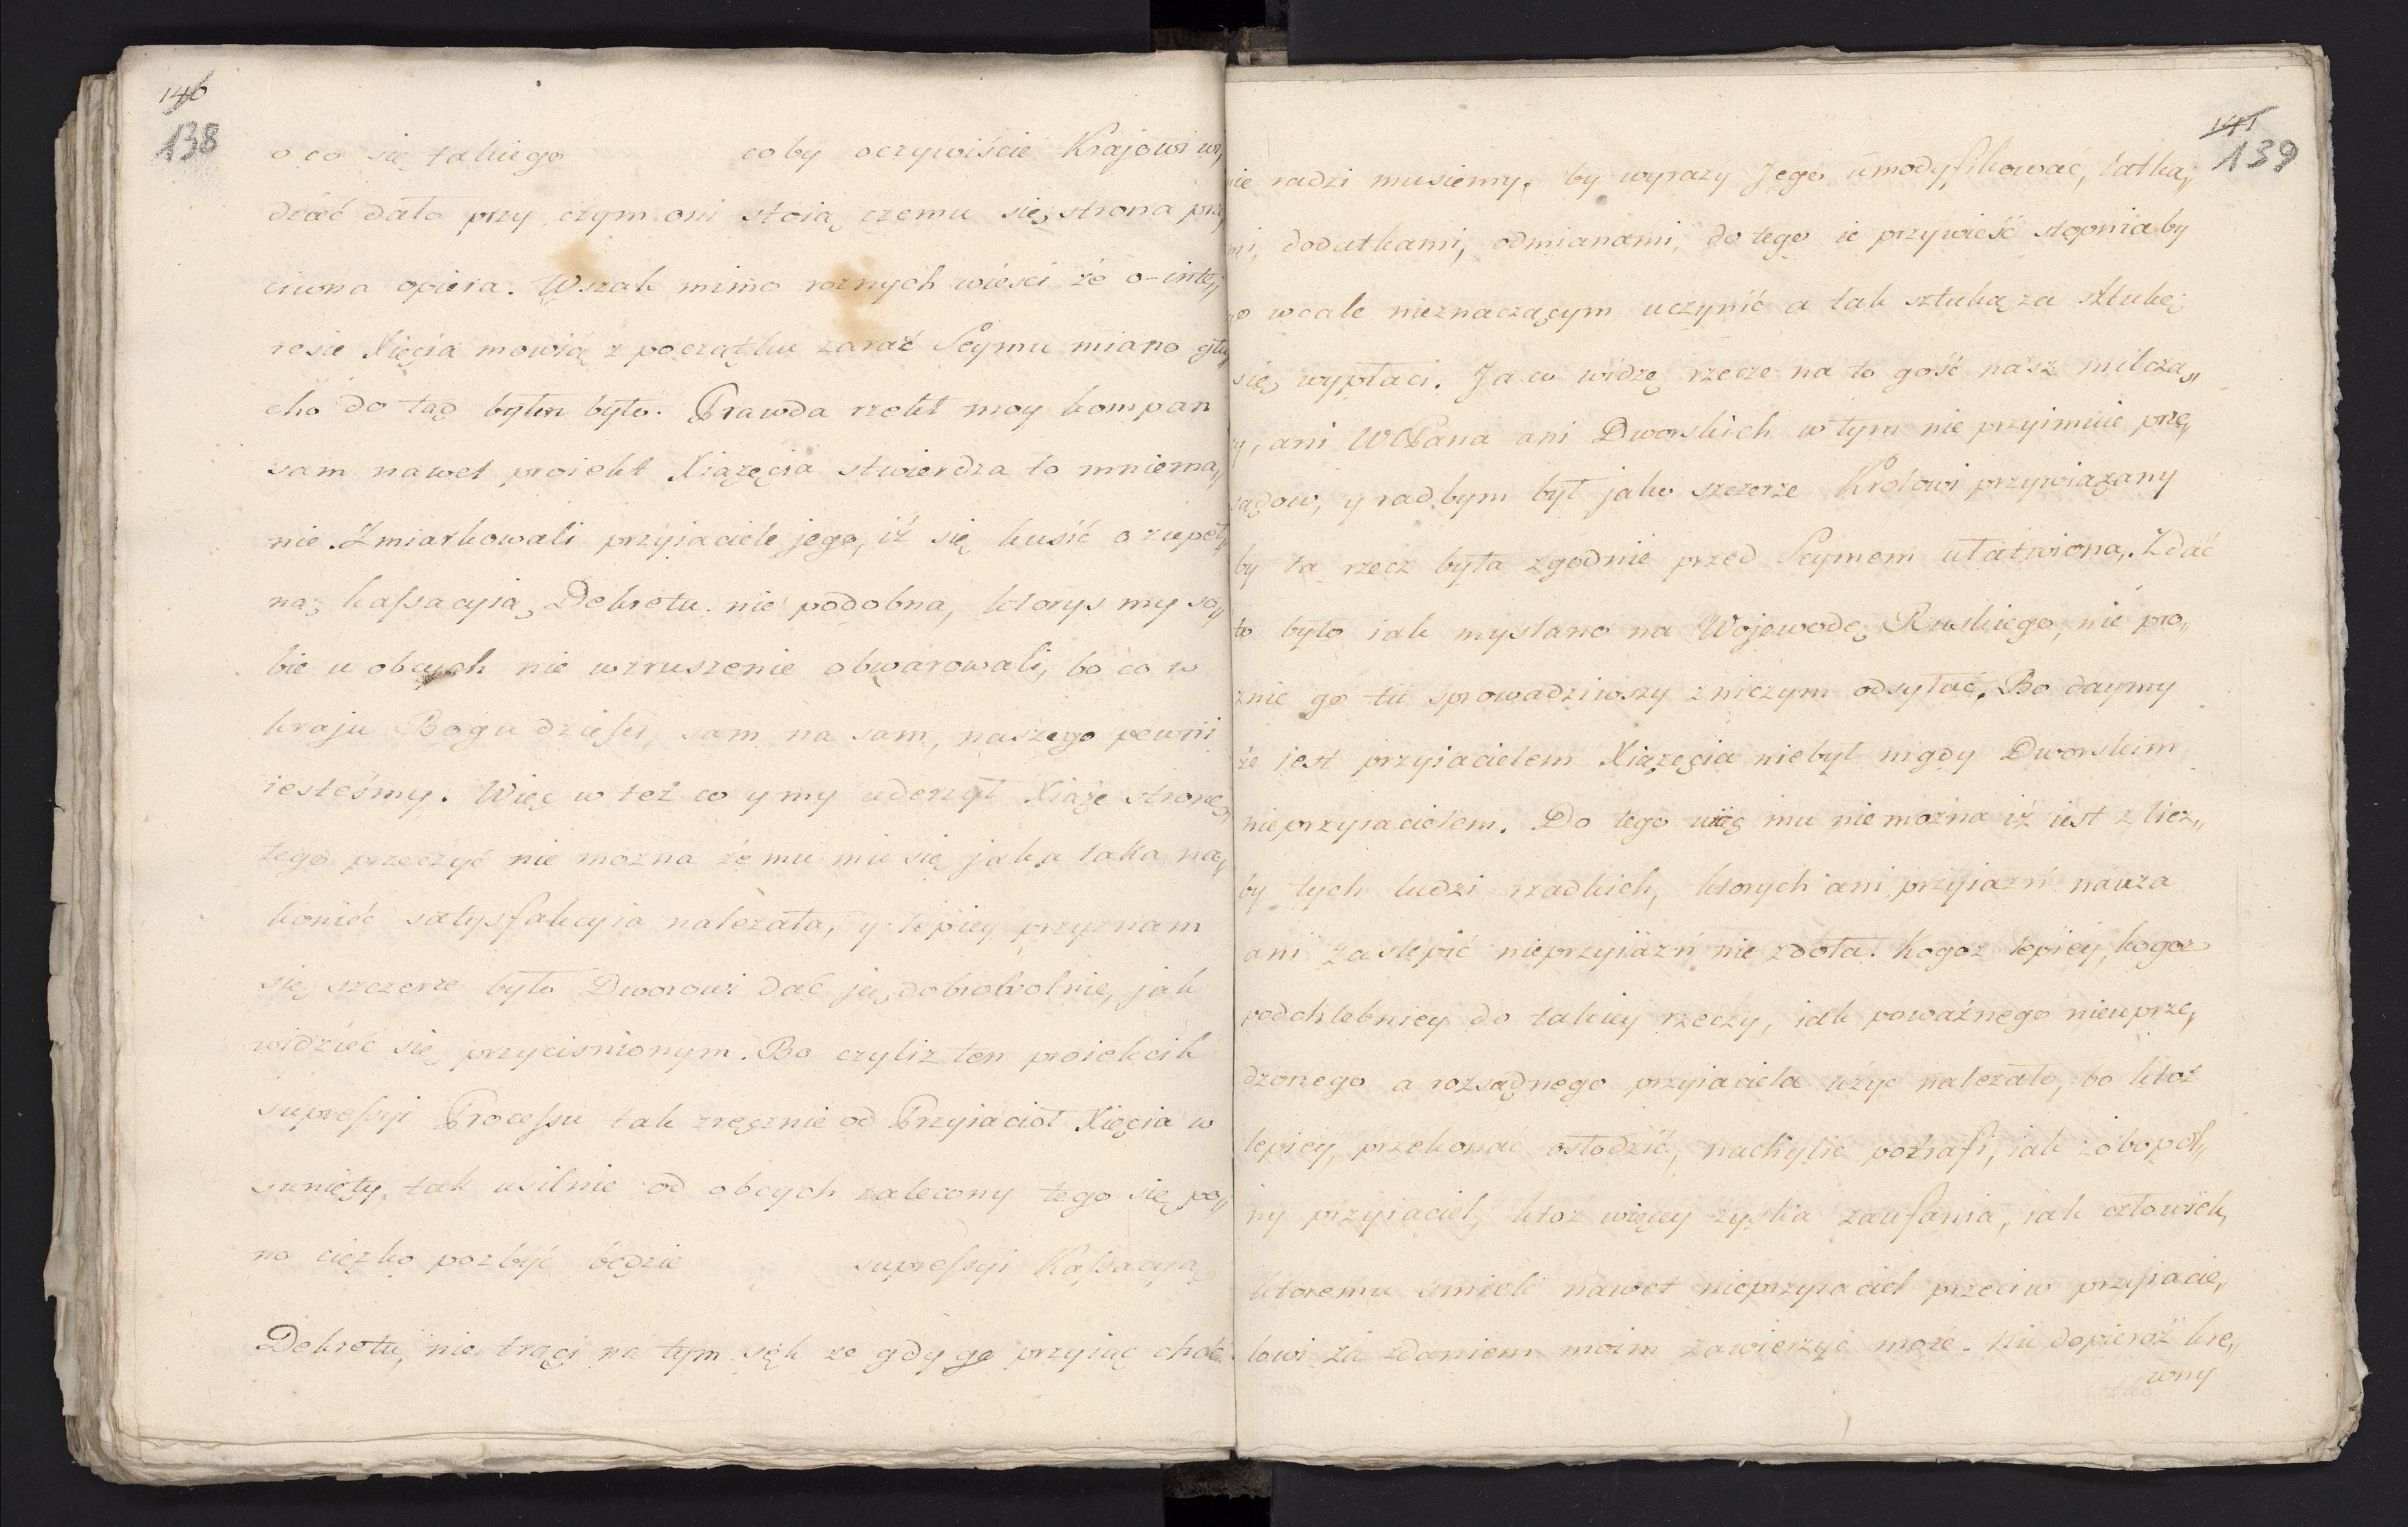 146
138
o co się takiego coby oczywiście Krajowi w,,
dzać dało przy czym oni stoią czemu się strona prze,,
ciwna opiera. Wszak mimo roznych wieści że o-inte,,
resie Xięcia mowią z początku zaraz Seymu miano głu,,
cho do tąd było. Prawda rzekł moy kompan
sam nawet proiekt Xiązęcia stwierdza to mniema,,
nie. Zmiarkowali przyiaciele jego, iż się kusić o zupeł,,
ną kassacyią Dekretu nie podobna, ktorys my so,,
bie u obcych nie wzruszenie obwarowali, bo co w
kraju Bogu dzieki, sam na sam, naszego pewni
iesteśmy. Więc w też co y my uderzył Xiąże stronę,
tego przeczyć nie mozna że mu mu się jaka taka na,,
konieć satysfakcyia nalezała, y lepiey przyznam
się szczerze było Dworowi dać ją dobrowolnie, jak
widzieć się przycisnionym. Bo czyliz ten proiekcik
supressyi Processu tak zręcznie od Przyiacioł Xięcia w
sunięty, tak usilnie od obcych zalecony tego się po,,
no cięzko pozbyć będzie supressyi Kassacyią
Dekretu, nie traci na tym sęk ze gdy go przyiąć choć
141
139
nie radzi musiemy, by wyrazy Jego umodyfikować, łatka,,
mi, dodatkami, odmianami, do tego ie przywieść stopnia by
go wcale nieznaczącym uczynić a tak sztuką za sztukę
się wypłaci. Ja co widzę rzecze na to gość nasz milczą,,
cy, ani WPana ani Dworskich w tym nie przyimuie prze,,
sądow, y rad bym był jako szczerze Krolowi przywiązany
by ta rzecz była zgodnie przed Seymem ułatwiona. Zdać
to było iak myslano na Wojewodę Ruskiego, nie pro,,
znie go tu sprowadziwszy z niczym odsyłać. Bo daymy
że jest przyiacielem Xiązęcia niebył nigdy Dworskim
nieprzyiacielem. Do tego uiąć mu nie mozna iż iest z licz,,
by tych ludzi rzadkich, ktorych ani przyiazń
ani zaslepić nieprzyiazń nie zdoła. Kogoz lepiey, kogoz
podchlebniey do takiey rzeczy, iak poważnego nieuprze,,
dzonego a rozsądnego przyiaciela użyć nalezało, bo ktoż
lepiey, przekonać osłodzić, nachylić potrafi, iak obopol,,
ny przyiaciel, ktoz więcey zyska zaufania, iak człowiek,
ktoremu smiele nawet nieprzyiaciel przeciw przyiacie,,
lowi za zdaniem moim zawierzyć może. Nu dopieroż kre,,
wny